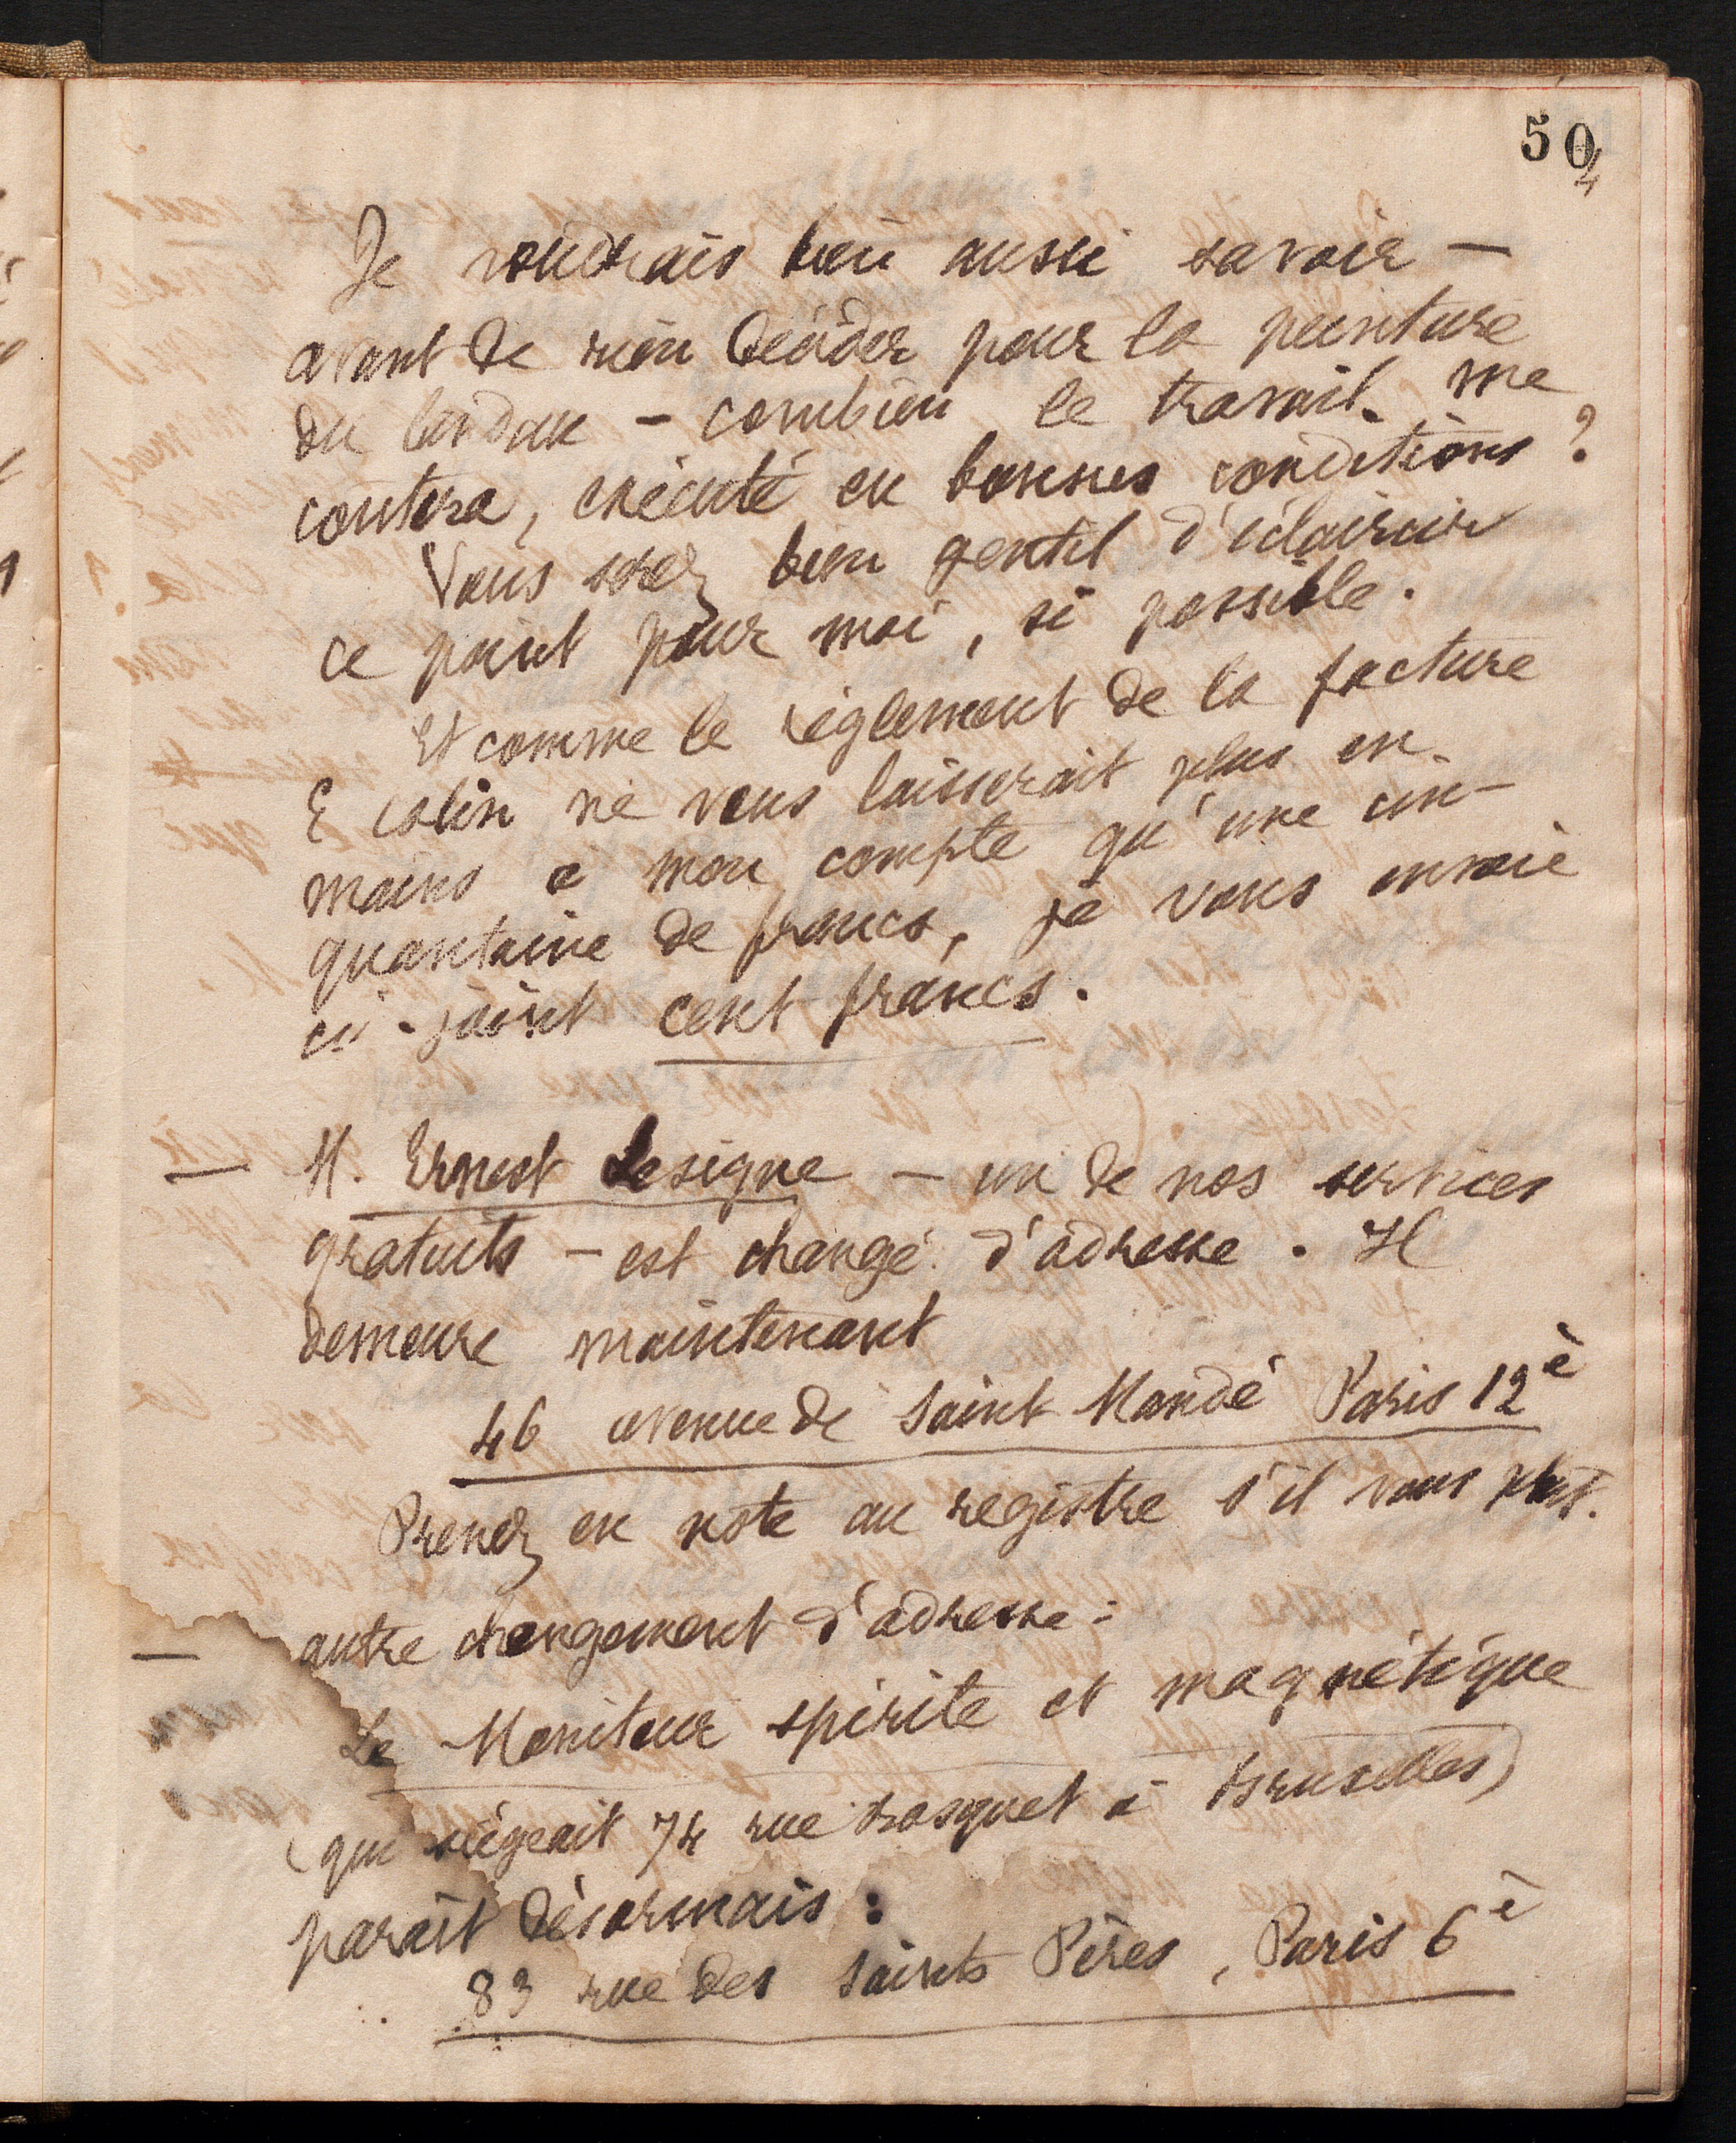 504
Je voudrais bien aussi savoir —
avant de rien décider pour la peinture
du landau — combien le travail me
coutera, exécuté en bonnes conditions ?
Vous serez bien gentil d'éclaircir
ce point pour moi, si possible.
Et comme le règlement de la facture
E Colin ne vous laisserait plus en
mains a mon compte qu'une cin-
quantaine de francs, je vous envoie
ci-joint cent francs.
— M. Ernest Lesigne — un de nos services
gratuits — est changé d'adresse. Il
demeure maintenant
46 avenue de Saint Mandé Paris 12è
Prenez en note au registre s'il vous plait.
— autre changement d'adresse :
Le Moniteur spirite et magnétique
(qui siégeait 74 rue à Bruxelles)
parait désormais :
83 rue des Saints Pères, Paris 6è